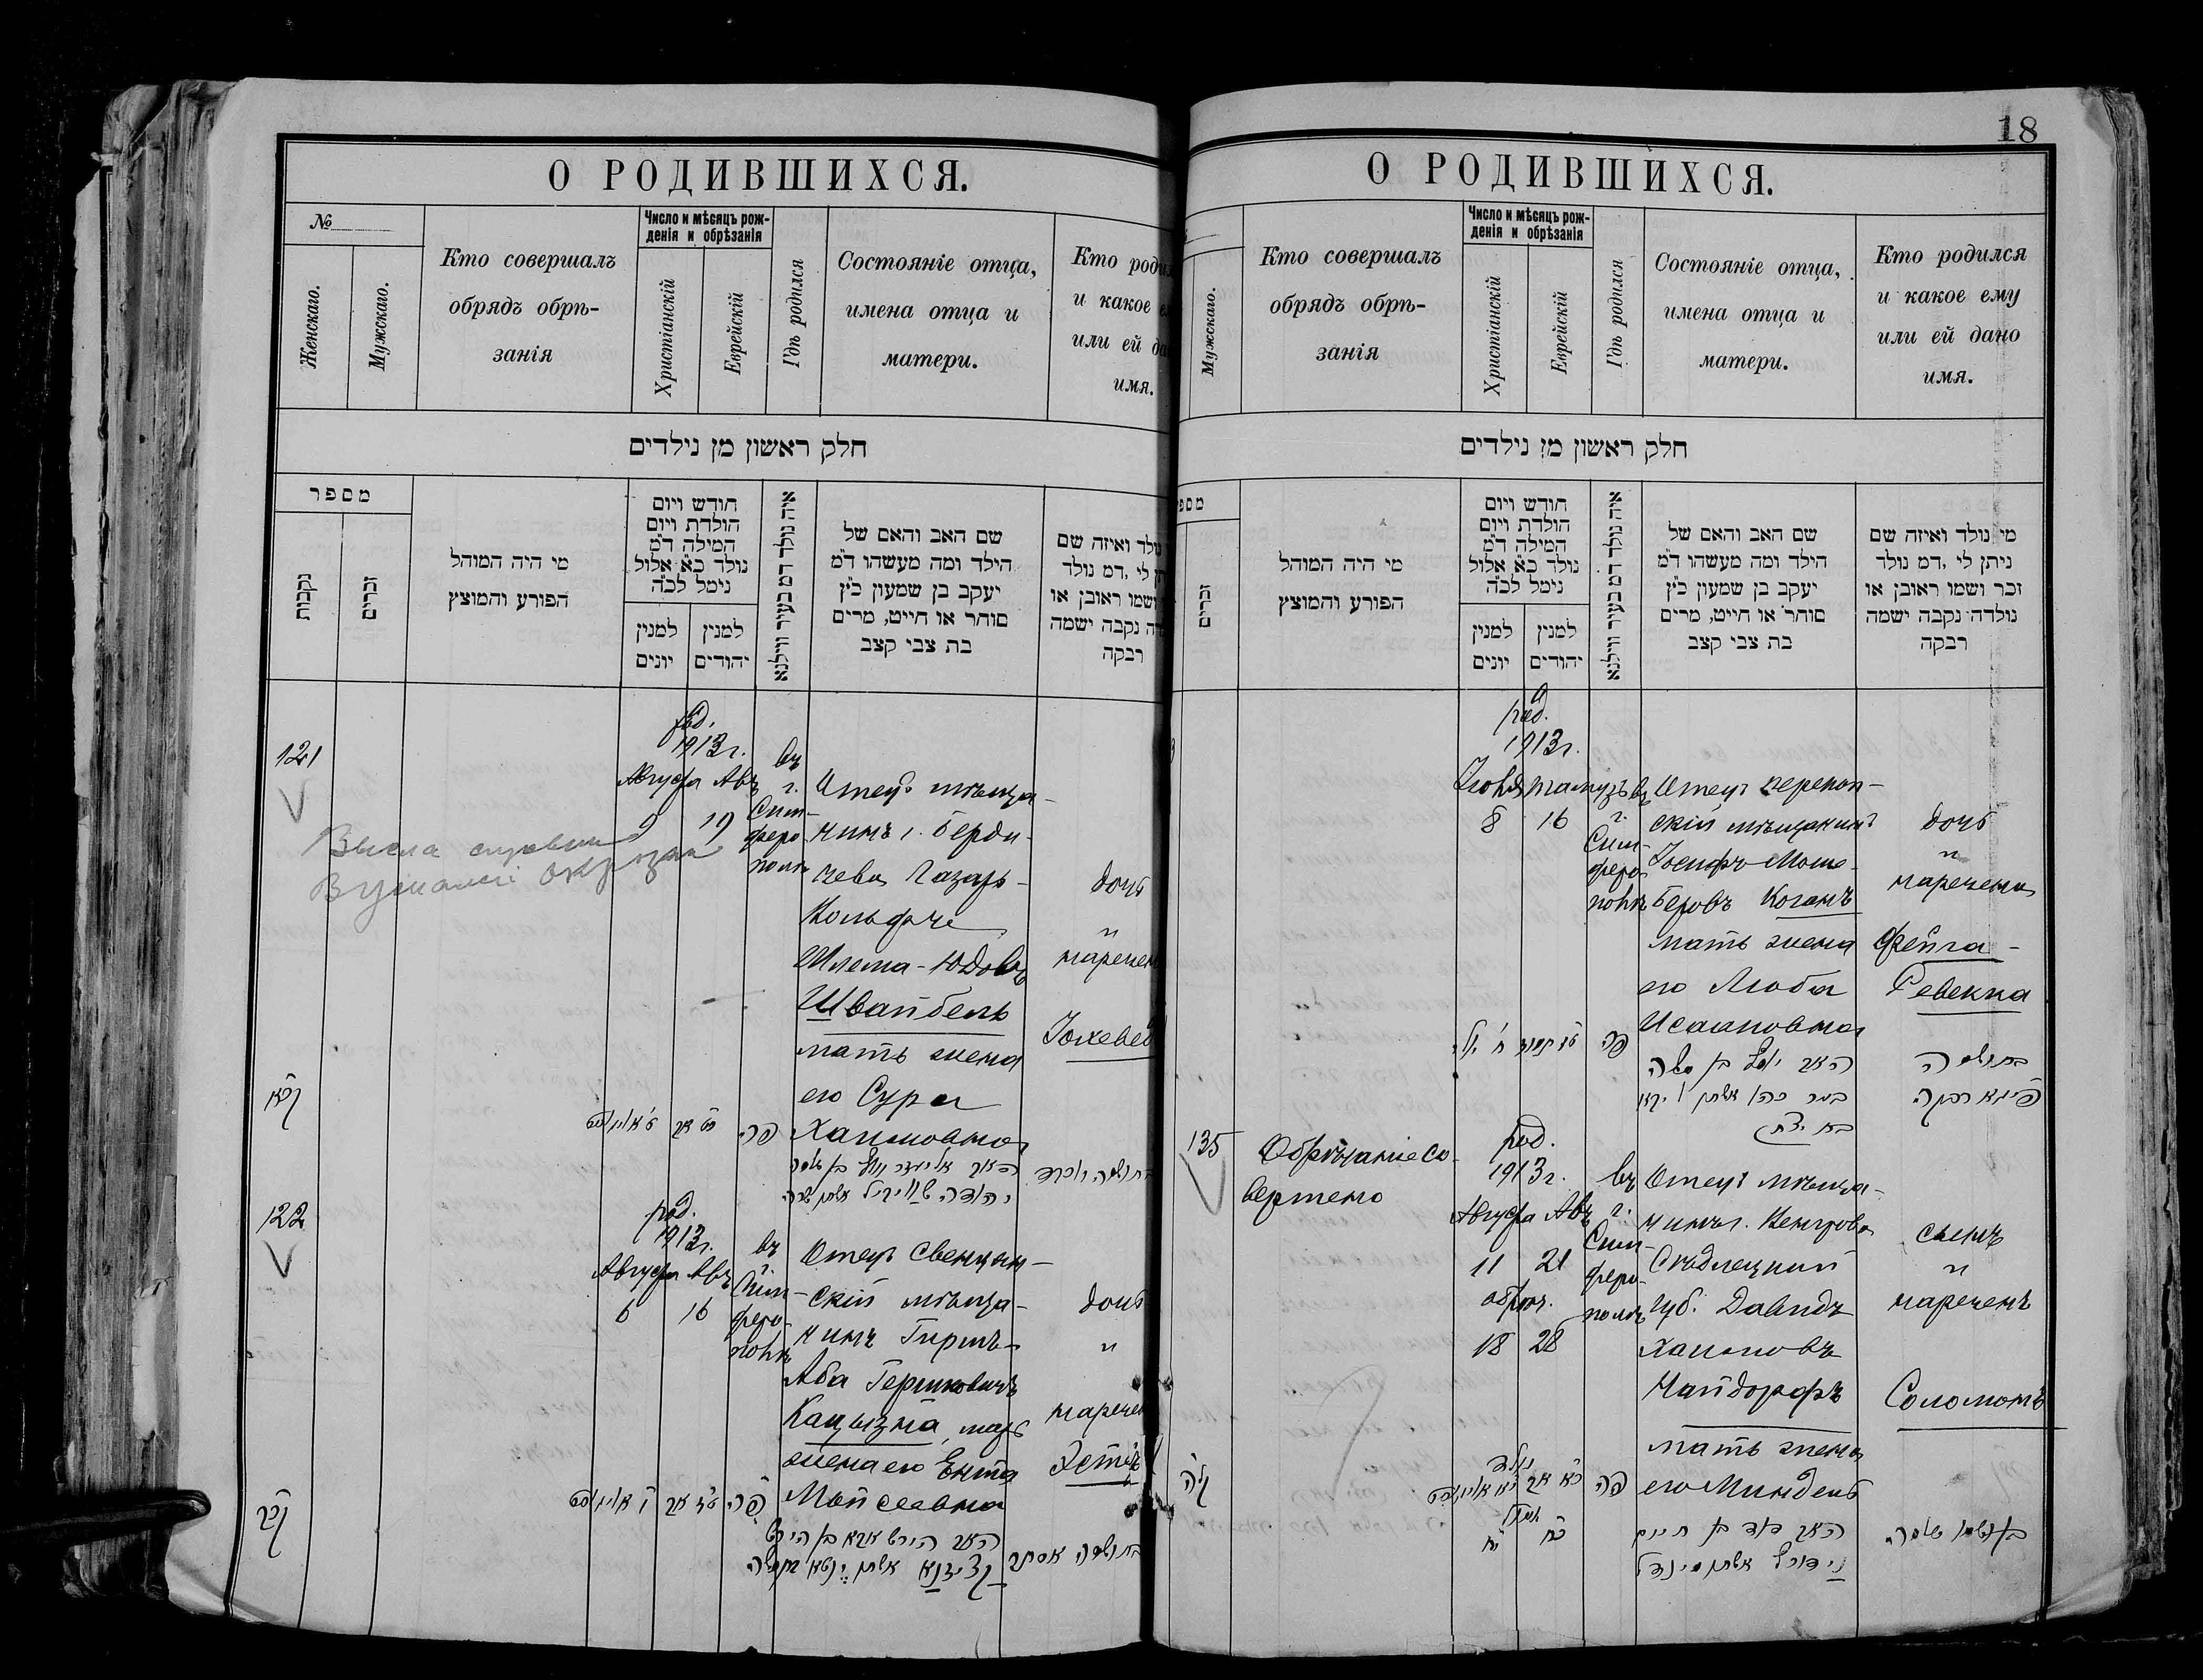 18
О РОДИВШИХСЯ.
№
Женскаго.
Мужскаго.
Кто совершалъ
обрядъ обрѣ-
занія
Число и мѣсяцъ рож-
денія и обрѣзанія
Христіанскій
Еврейскій
Гдѣ родился
Состояніе отца,
имена отца и
матери.
Кто роди
и какое е
или ей да
имя.
חלק ראשון מן נילדים
מספר
נקבות
זכרים
מי היה המוהל
הפורע והמוצץ
חודש ויום
הולדת ויום
המילה ד"מ
נולד כ"א אלול
נימל לכ"ה
למנין
יונים
למנין
יהודים
איה נולד דמ בעיר ווילנא
שם האב והאם של
הילד ומה מעשהו ד"מ
יעקב בן שמעון כ"ץ
סוחר או חייט, מרים
בת צבי קצב
נולד ואיזה שם
תן לי ,דמ נולד
ושמו ראובן או
דה נקבה ישמה
רבקה
121
род.
1913 г.
Августа Авъ
9 19
въ
г.
Сим-
феро
полѣ
Отецъ мѣща-
нинъ г. Берди-
чева Лазарь-
Вольфъ
Шлема-Юдовъ
Швайбель
мать жена
его Сура
Хаимовна
дочь
и
наречен
Йохевед
קכא
פה
122
род.
1913 г.
Августа Авъ
6 16
въ
г.
Сим-
феро-
полѣ
Отецъ Свенцян-
скій мѣща-
нинъ Гиршъ-
Аба Гершковичъ
Кацызна, мать
жена его Ента
Мойсеевна
дочь
и
наречен
Эстиръ
קכב
פה
О РОДИВШИХСЯ.
Мужскаго.
Кто совершалъ
обрядъ обрѣ-
занія
Число и мѣсяцъ рож-
денія и обрѣзанія
Христіанскій
Еврейскій
Гдѣ родился
Состояніе отца,
имена отца и
матери.
Кто родился
и какое ему
или ей дано
имя.
חלק ראשון מן נילדים
מספ
זכרים
מי היה המוהל
הפורע והמוצץ
חודש ויום
הולדת ויום
המילה ד"מ
נולד כ"א אלול
נימל לכ"ה
למנין
יונים
למנין
יהודים
איה נולד דמ בעיר ווילנא
שם האב והאם של
הילד ומה מעשהו ד"מ
יעקב בן שמעון כ"ץ
סוחר או חייט, מרים
בת צבי קצב
מי נולד ואיזה שם
ניתן לי ,דמ נולד
זכר ושמו ראובן או
נולדה נקבה ישמה
רבקה
род.
1913 г.
Іюля Тамузъ
8 16
въ
г.
Сим-
феро-
полѣ
Отецъ перекоп-
скій мѣщанинъ
Іосифъ Моше-
Беровъ Коганъ
мать жена
его Люба
Исааковна
дочь
и
наречена
Фейга-
Ревекка
פה
האב יוסף בן משה
בער כהן
פייגא רבקה
135
Обрѣзаніе со-
вершено
род.
1913 г.
Августа Авъ
11 21
обрѣз.
18 28
въ
г.
Сим-
феро-
полѣ
Отецъ мѣща-
нинъ г. Венгрова
Сѣдлецкой
губ. Давидъ
Хаимовъ
Найдорфъ
мать жена
его Миндель
сынъ
и
нареченъ
Соломонъ
קלה
נולד
פה
האב דוד בן חיים